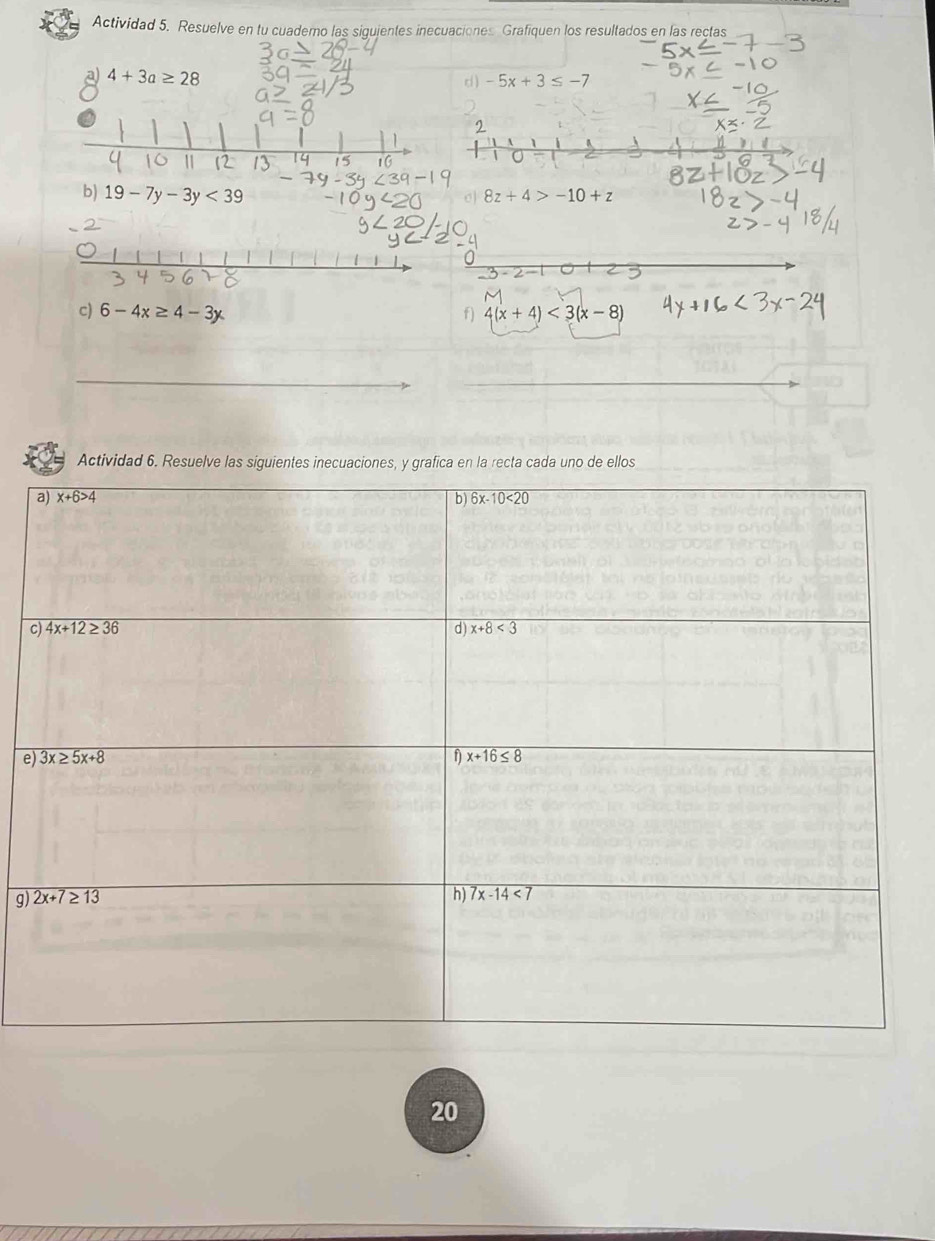 Actividad 5. Resuelve en tu cuaderno las siguientes inecuaciones Grafiquen los resultados en las rectas
3a ≥ 28-4
-5x ≤ -7-3
a) 4 + 3a ≥ 28
3a = 24
d) -5x + 3 ≤ -7
-5x ≤ -10
a ≥ 24/3
x ≤ -10/-5
a = 8
x ≤ 2
9 10 11 12 13 14 15 16
2
-7y - 3y < 39 - 19
8z + 10z > -4
b) 19 - 7y - 3y < 39
-10y < 20
e) 8z + 4 > -10 + z
18z > -4
-2
y < 20/-10
z > -4 18/4
y < -2
3 4 5 6 7 8
-4
0
-3 -2 -1 0 1 2 3
c) 6 - 4x ≥ 4 - 3x
f) 4(x + 4) < 3(x - 8)
4x + 16 < 3x - 24
Actividad 6. Resuelve las siguientes inecuaciones, y grafica en la recta cada uno de ellos
a) x+6>4
b) 6x-10<20
c) 4x+12 ≥ 36
d) x+8 < 3
e) 3x ≥ 5x+8
f) x+16 ≤ 8
g) 2x+7 ≥ 13
h) 7x-14 < 7
20